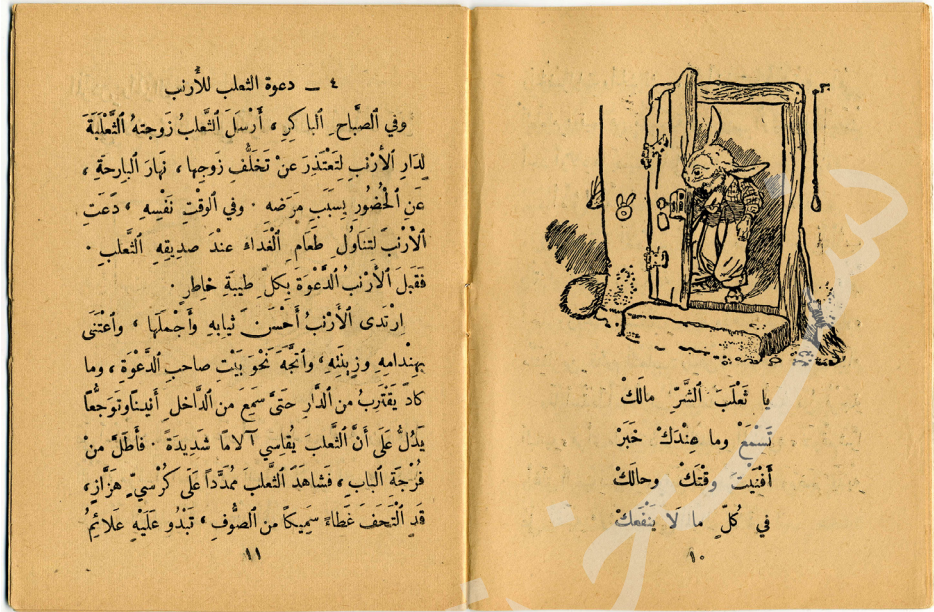 يا ثَعْلَبَ ٱلشَّرِّ مالَكْ
تَسْمَعْ وما عِنْدَكْ خَبَرْ
أَفْنَيْتَ وقْتَكْ وحالَكْ
في كُلِّ ما لَا يَنْفَعكْ
١٠
٤ ــ دعوة الثعلب للأرنب
وفي ٱلصَّباحِ ٱلباكِرِ ، أَرْسَلَ ٱلثَّعلبُ زَوجتهُ ٱلثَّعْلَبَةَ
لِدَارِ ٱلأَرْنبِ لِتَعْتَذِرَ عَنْ تَخَلُّفِ زَوجِها ، نَهارَ ٱلبارِحةِ ،
عَنِ ٱلْحُضُورِ بِسَبَبِ مَرَضه . وفي ٱلوقْتِ نَفْسهِ ، دَعَتِ
ٱلأَرْنبَ لِتناوُلِ طَعَامِ ٱلغَداء عندَ صديقهِ ٱلثَّعلب .
فَقَبلَ ٱلأَرْنبُ ٱلدَّعْوَةَ بِكلِّ طيبةِ خاطِرٍ .
اِرتدى ٱلأَرْنبُ أَحْسَنَ ثيابهِ وأَجْملَها ، وٱعْتَنَى
بِهِنْدامهِ وزِينَتهِ، وٱتجَّهَ نَحْوَ بَيْتِ صاحبِ ٱلدَّعْوَةِ ، وما
كادَ يَقْتَرِبُ من ٱلدَّارِ حتىَّ سَمِعَ من ٱلدَّاخلِ أَنيناًوتوَجُّعاً
يَدُلُّ عَلَى أَنَّ ٱلثَّعلبَ يُقاسِي آلامًا شَدِيدَةً . فأَطَلَّ منْ
فُرْجَة ٱلباب ، فَشاهدَ ٱلثَّعلَبَ مُمدَّداً عَلَى كُرْسيٍّ هزَّازٍ،
قَدِ ٱلْتَحَفَ غَطاءً سَمِيكاً من ٱلصُّوفِ ، تَبْدُو عَلَيْهِ عَلائِمُ
١١